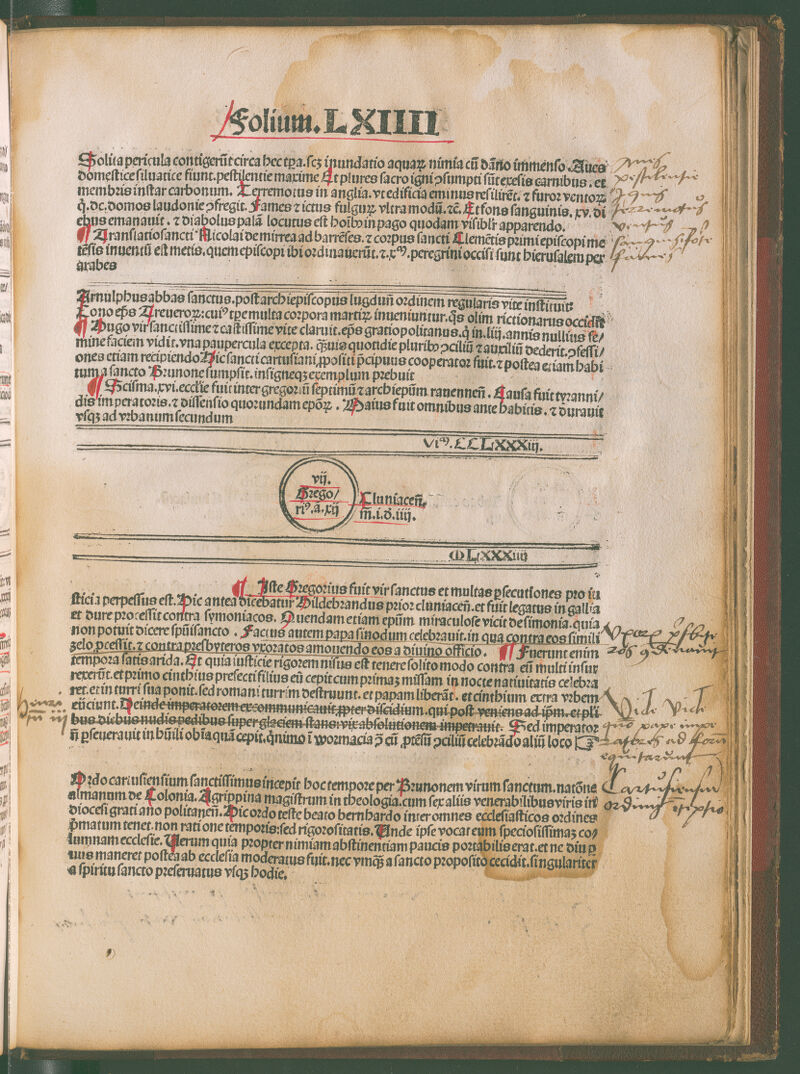 Folium. LXIIII
Solita pericula contigerūt circa hec tꝑa. scꝫ inundatio aquaꝝ nimia cū dāno immenso. Aues
domestice siluatice fiunt. pestilentie maxime Et plures sacro igni ↄsumpti sūt exesis carnibus. et
membris instar carbonum. Terremotus in anglia. vt edificia eminus resilirēt. ⁊ furor ventoꝝ
q̄. dc. domos laudonie ↄfregit. Fames ⁊ ictus fulguꝝ vltra modū. ⁊c̄. Et fons sanguinis. xv. di
ebus emanauit. ⁊ diabolus palā locutus est hoībꝫ in pago quodam visibilr̄ apparendo.
¶ Translatio sancti Nicolai de mirrea ad barrēses. ⁊ corpus sancti Clemētis primi episcopi me
tēsis inuentū est metis. quem episcopi ibi ordinauerūt. ⁊ xꝰ. peregrini occisi sunt hierusalem per
arabes
Arnulphus abbas sanctus. post archiepiscopus lugduñ ordinem regularis vite instituit
Cono ep̄s Treueroꝝ: cuiꝰ tp̄e multa corpora martiꝝ inueniuntur. q̄s olim rictionarus occidit
¶ Hugo vir sanctissime ⁊ castissime vite claruit. ep̄s gratiopolitanus. q̄ in. liij. annis nullius fe/
mine faciem vidit. vna paupercula excepta. q̄uis quotidie pluribꝫ ↄciliū ⁊ auxiliū dederit. ↄfessi/
ones etiam recipiendo Hic sancti cartusiani ꝓpositi p̄cipuus cooperator fuit. ⁊ postea etiam habi
tum a sancto Brunone sumpsit. insigneqꝫ exemplum prebuit
¶ Scisma. xvi. ecclīe fuit inter gregoriū septimū ⁊ archiepūm rauenneñ. Causa fuit tyranni/
dis imperatoris. ⁊ dissensio quorundam epōꝝ. Maius fuit omnibus ante habitis. ⁊ durauit
vsqꝫ ad vrbanum secundum
Viꝰ. CCLXXXiij.
vij.
Grego/
riꝰ. a. xij
Cluniaceñ.
m̄. i. d̄. iiij.
M LXXXiiij
¶ Iste Gregorius fuit vir sanctus et multas ꝑsecutiones pro iu
sticia perpessus est. Hic antea dicebatur Hildebrandus prior cluniaceñ. et fuit legatus in gallia
et dure processit contra symoniacos. Quendam etiam epūm miraculose vicit de simonia. quia
non potuit dicere sp̄ūi sancto. Factus autem papa sinodum celebrauit. in qua contra eos simili
zelo ꝓcessit. ⁊ contra presbyteros vxoratos amouendo eos a diuino officio. ¶ Fuerunt enim
tempora satis arida. Et quia iusticie rigorem nisus est tenere solito modo contra eū multi insur
rexerūt. et primo cinthius prefecti filius eū cepit cum primaꝫ missam in nocte natiuitatis celebra
ret. et in turri sua ponit. sed romani turrim destruunt. et papam liberāt. et cinthium extra vrbem
eijciunt. Deinde imperatorem excommunicauit. ꝓpter discidium. qui post veniens ad ip̄m. et plu
bus diebus nudis pedibus super glaciem stans: vix absolutionem impetrauit. Sed imperator
nō ꝑseuerauit in hūili obīa quā cepit. q̄nimo ī wormacia ↄ̄ eū ꝓtēsū ↄciliū celebrādo aliū loco
Ordo cartusiensium sanctissimus incepit hoc tempore per Brunonem virum sanctum. natōne
almanum de Colonia. Agrippina magistrum in theologia. cum sex aliis venerabilibus viris in
diocesi gratianopolitaneñ. Hic ordo teste beato bernhardo inter omnes ecclesiasticos ordines
ꝑmatum tenet. non ratione temporis: sed rigorositatis. Unde ipse vocat eum speciosissimaꝫ co/
lumnam ecclesie. Uerum quia propter nimiam abstinentiam paucis portabilis erat. et ne diu ꝑ
uus maneret postea ab ecclesia moderatus fuit. nec vmqꝫ a sancto proposito cecidit. singulariter
a spiritu sancto preseruatus vsqꝫ hodie.
Aues
pestilentie
Ignis
terremotus
ventus
fames
Vide Vide
ordinis